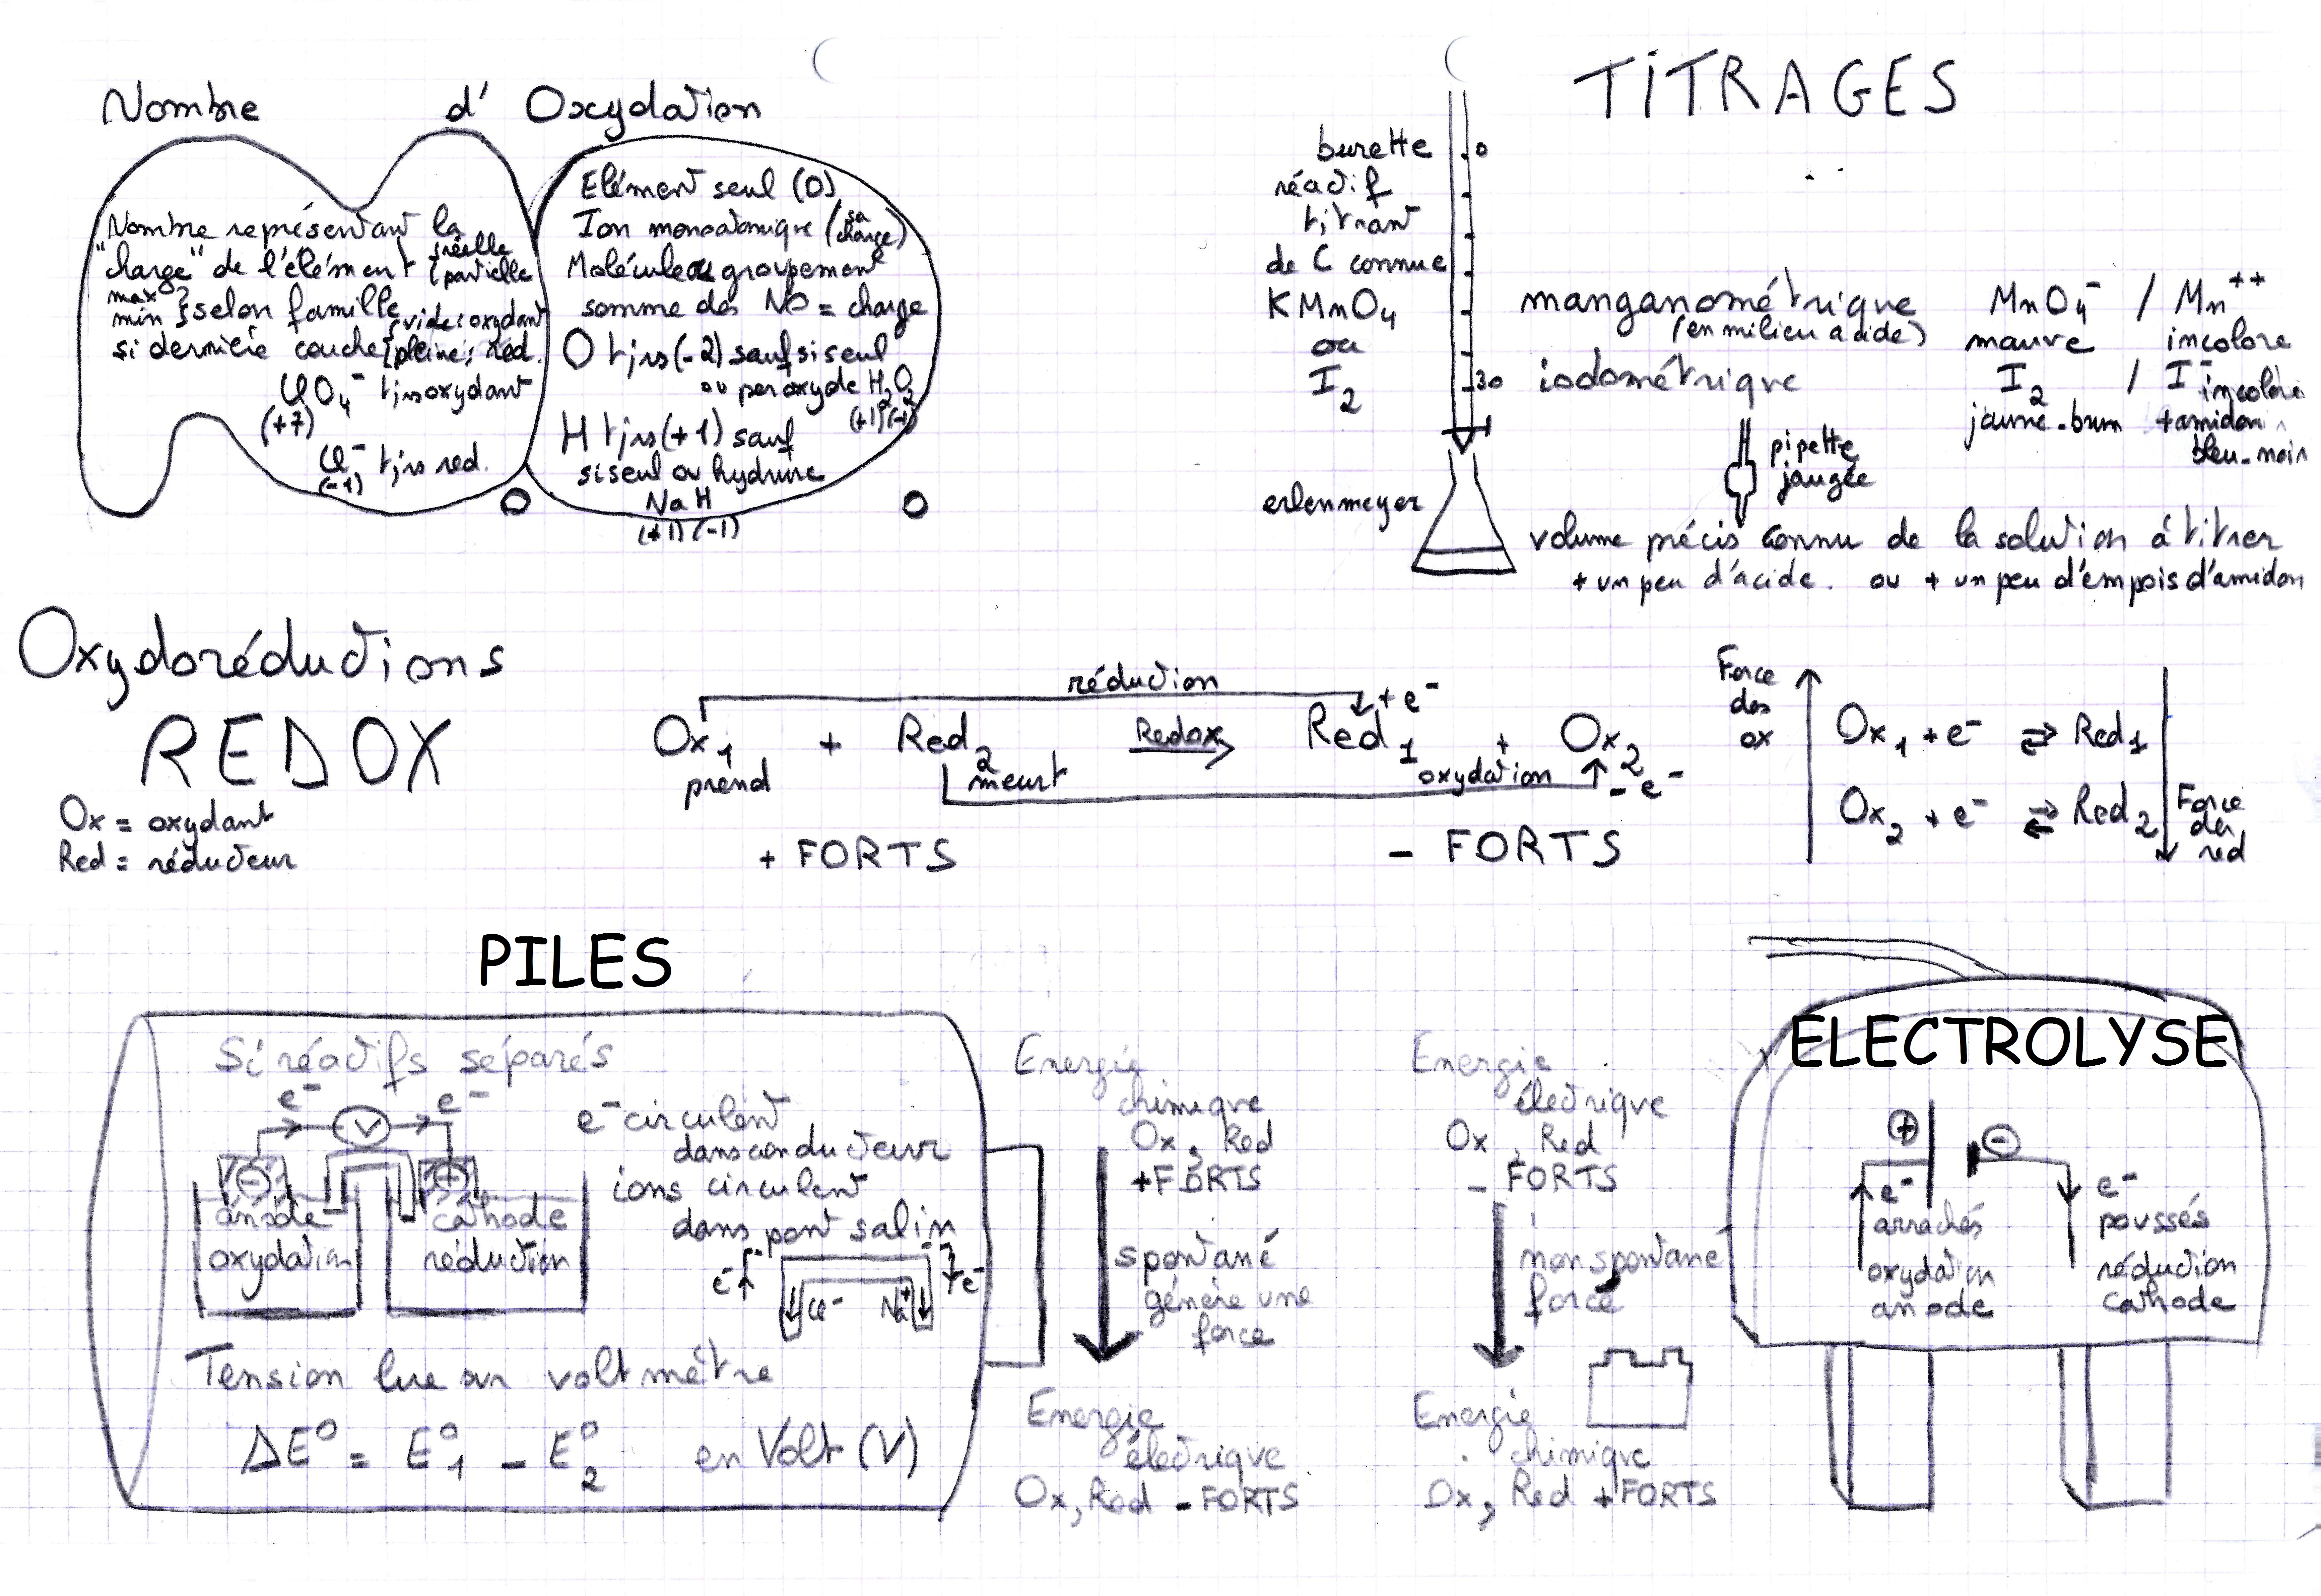 Nombre d' Oxydation
Nombre représentant la
"charge" de l'élément { réelle
partielle
max
min } selon famille
si dernière couche { vide : oxydant
pleine : red.
ClO4- tjrs oxydant
(+7)
Cl- tjrs red.
(-1)
Elément seul (0)
Ion monoatomique (sa charge)
Molécule ou groupement
somme des NO = charge
O tjrs (-2) sauf si seul
ou peroxyde H2O2
(+1)(-1)
H tjrs (+1) sauf
si seul ou hydrure
NaH
(+1)(-1)
TITRAGES
burette
réactif
titrant
de C connue
KMnO4
ou
I2
0
30
manganométrique
(en milieu acide)
MnO4- / Mn++
mauve incolore
iodométrique
I2 / I-
incolore
jaune-brun + amidon
bleu-noir
pipette
jaugée
erlenmeyer
volume précis connu de la solution à titrer
+ un peu d'acide. ou + un peu d'empois d'amidon
Oxydoréductions
REDOX
Ox = oxydant
Red = réducteur
réduction
+ e-
Ox1 + Red2 Redox Red1 + Ox2
prend meurt oxydation - e-
+ FORTS - FORTS
Force
des
ox
Ox1 + e- ⇄ Red1
Ox2 + e- ⇄ Red2
Force
des
red
PILES
Si réactifs séparés
e- V e-
- +
anode cathode
oxydation réduction
e- circulent
dans conducteur
ions circulent
dans pont salin
e- Cl- Na+ e-
Tension lue sur voltmètre
ΔE° = E°1 - E°2 en Volt (V)
Energie
chimique
Ox, Red
+ FORTS
spontané
génère une
force
Energie
électrique
Ox, Red - FORTS
Energie
électrique
Ox, Red
- FORTS
non spontané
forcé
Energie
chimique
Ox, Red + FORTS
ELECTROLYSE
+ -
e-
arrachés
oxydation
anode
e-
poussés
réduction
cathode